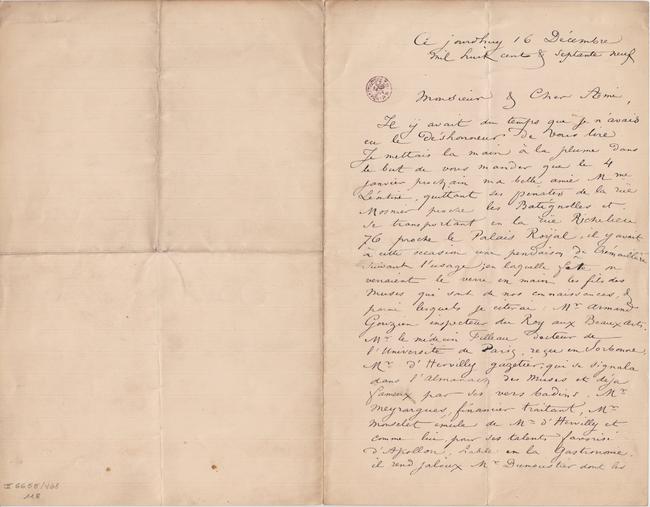 Ce jourdhuy 16 Décembre
mil huit cent & septante neuf
Monsieur & Cher Ami,
Il y avait du temps que je n'avais
eu le déshonneur de vous lire
Je mettais la main à la plume dans
le but de vous mander que le 4
janvier prochain ma belle amie Mme
quittant ses pénates de la rue
Mosnier proche les Batignolles et
se transportant en la rue Richelieu
76 proche le Palais Royal, il y avait
à cette occasion une pendaison de Crémaillère
suivant l'usage, en laquelle fête on
venaient le verre en main les fils des
Muses qui sont de nos connaissances, &
parmi lesquels je citerai: Mr Armand
Gouzien inspecteur du Roy aux Beaux Arts.
Mr le médecin Filleau docteur de
l'Université de Paris, reçu en Sorbonne,
Mr d'Hervilly gazetier, qui se signala
dans l'Almanach des Muses et déjà
fameux par ses vers badins, Mr
Meyrargues, financier traitant, Mr
Monselet émule de Mr d'Hervilly et
comme lui pour ses talents favorisé
d'Apollon, habile en la Gastronomie.
il rend jaloux Mr Dumoustier dont les
II 6655/468
118